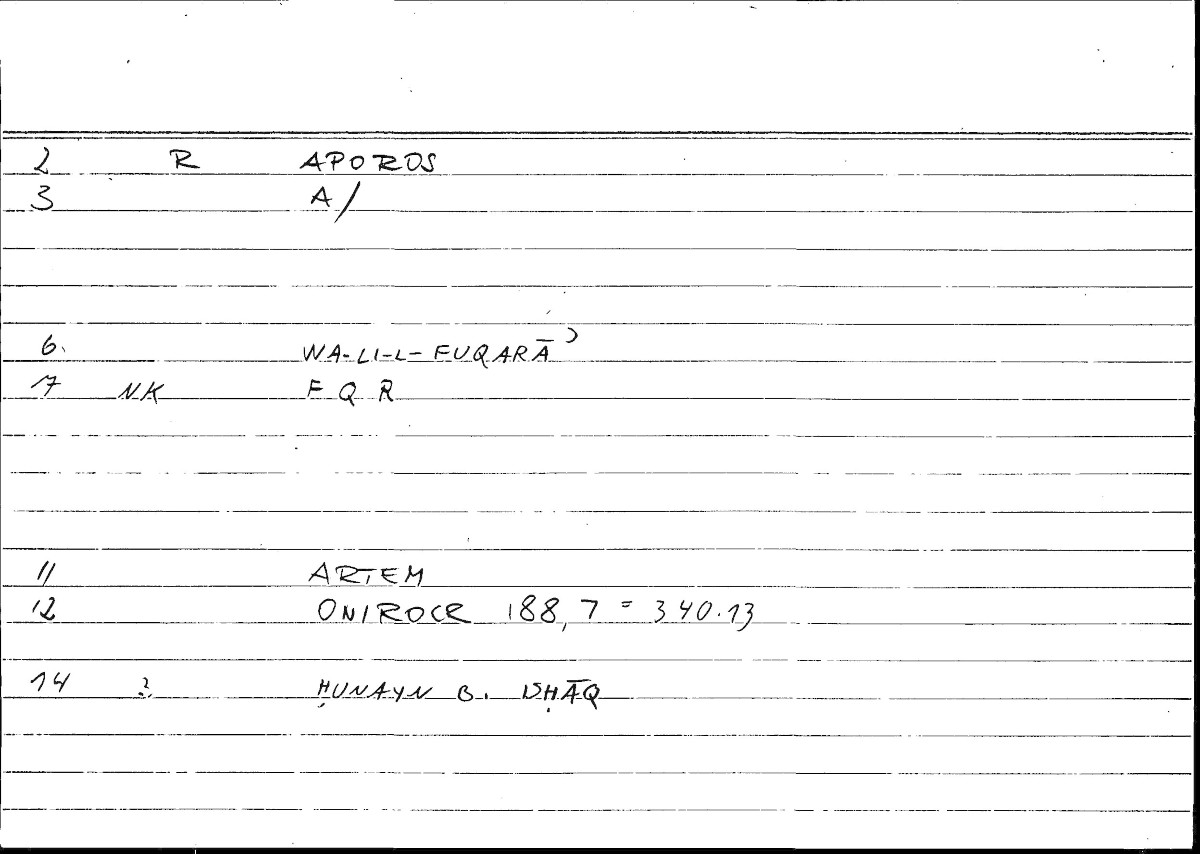 2 R APOROS
3 A/
6. WA-LI-L-FUQARĀʾ
7 NK F Q R
11 ARTEM
12 ONIROCR 188,7 = 340.13
14 ? ḤUNAYN B. ISḤĀQ